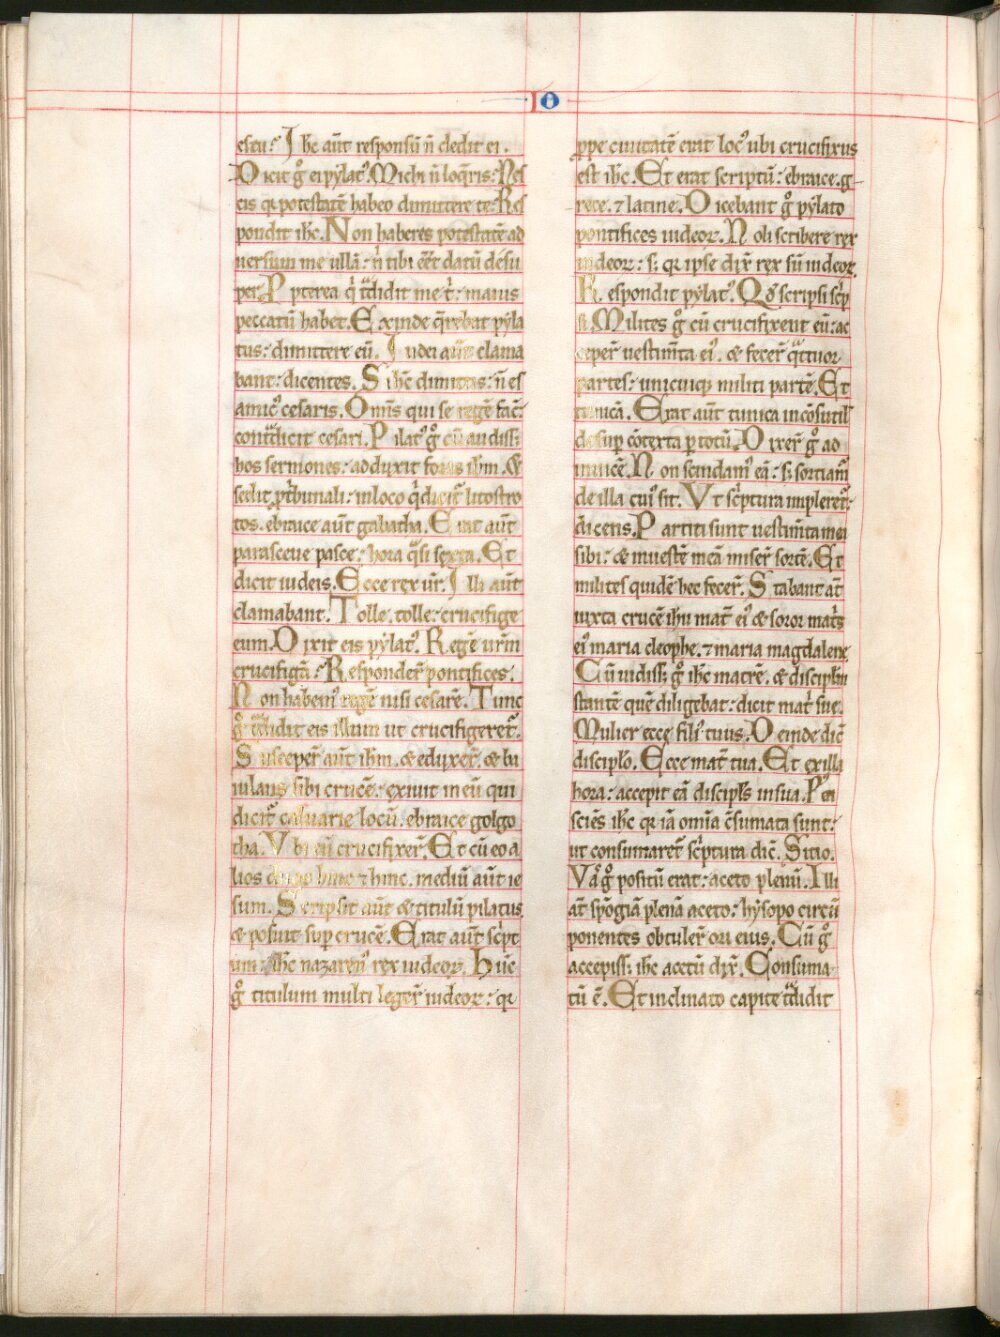 IO
estu? Ihc aut̄ responsū n̄ dedit ei.
Dicit gͦ ei pẏlatꝰ. Michi n̄ loq̄ris: Nes
cis qꝛ potestatē habeo dimittere te: Res
pondit ihc̄. Non haberes potestatē ad
uersum me ullā: n̄ tibi eēt datū desu
per. Ppterea qͥ tͣdidit me tͥ: maius
peccatū habet. Exinde q̄rebat pẏla
tus: dimittere eū. Iudei aūt clama
bant: dicentes. Si hc̄ dimittis: n̄ es
amicꝰ cesaris. Omīs qui se regē fac̄:
contͣdicit cesari. Pilatꝰ gͦ cū audiss̄:
hos sermones: adduxit foras ihm̄. &
sedit ꝓ tͥbunali: in loco qͥ dicit᷑ litostro
tos. ebraice aūt gabatha. Erat aūt
parasceue pasce: hora qͣsi sexta. Et
dicit iudeis. Ecce rex ur̄. Illi aūt
clamabant. Tolle. tolle: crucifige
eum. Dixit eis pẏlatꝰ. Regē urm̄
crucifigā? Responder̄ pontifices.
Non habemꝰ regē nisi cesarē. Tunc
gͦ tͣdidit eis illum ut crucifigeret᷑.
Susceper̄ aūt ihm̄. & eduxer̄. & ba
iulans sibi crucē: exiuit in eū qui
dicit᷑ caluarie locū. ebraice golgo
tha. Vbi eū crucifixer̄. Et cū eo a
lios duos hinc ⁊ hinc. mediū aūt ie
sum. Scripsit aūt & titulū pilatus.
& posuit suꝑ crucē. Erat aūt scͥpt
um: ihc̄ nazarenꝰ rex iudeoꝝ. Hūc
gͦ titulum multi leger̄ iudeoꝝ: qꝛ
ꝓpe ciuitatē erat locꝰ ubi crucifixus
est ihc̄. Et erat scriptū: ebraice. g-
rece. ⁊ latine. Dicebant gͦ pẏlato
pontifices iudeoꝝ. Noli scribere rex
iudeoꝝ: s; qꝛ ipse dix̄ rex sū iudeoꝝ.
Respondit pẏlatꝰ. Qd̄ scripsi scͥp
si. Milites gͦ cū crucifixent eū: ac
ceper̄ uestim̄ta eiꝰ. & fecer̄ qͣttuor
partes: unicuiqꝫ militi partē. Et
tunicā. Erat aūt tunica incōsutil᷑
desuꝑ cōtexta ꝑ totū. Dixer̄ gͦ ad
inuicē. Non scindamꝰ eā: s; sortiam᷑
de illa cuiꝰ sit. Vt scͥptura impleret᷑:
dicens. Partiti sunt uestim̄ta mei
sibi: & in uestē meā miser̄ sortē. Et
milites quidē hec fecer̄. Stabant at̄
iuxta crucē ihu mat̄ eiꝰ & soror matͥs
eiꝰ maria cleophe. ⁊ maria magdalene.
Cū uidiss̄: gͦ ihc̄ matrē. & discipl̄m
stantē quē diligebat: dicit matͥ sue.
Mulier ecce filiꝰ tuus. Deinde dic̄
discipl̄o. Ecce mat̄ tua. Et ex illa
hora: accepit eā discipl̄s in sua. Pea
sciēs ihc̄ qꝛ iā omīa c̄sumata sunt:
ut consumaret᷑ scͥptura dic̄. Sitio.
Vas gͦ positū erat: aceto plenū. Illi
at̄ spōgiā plenā aceto: hẏsopo circū
ponentes obtuler̄ ori eius. Cū gͦ
accepiss̄: ihc̄ acetū dix̄. Consuma-
tū ē. Et inclinato capite tͣdidit